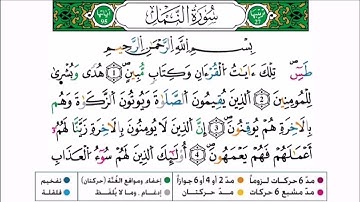 سُورَةُ النَّمْلِ
بِسْمِ ٱللَّهِ ٱلرَّحْمَٰنِ ٱلرَّحِيمِ
طسٓ تِلْكَ ءَايَٰتُ ٱلْقُرْءَانِ وَكِتَابٍ مُّبِينٍ ١ هُدًى وَبُشْرَىٰ
لِلْمُؤْمِنِينَ ٢ ٱلَّذِينَ يُقِيمُونَ ٱلصَّلَوٰةَ وَيُؤْتُونَ ٱلزَّكَوٰةَ وَهُم
بِٱلْءَاخِرَةِ هُمْ يُوقِنُونَ ٣ إِنَّ ٱلَّذِينَ لَا يُؤْمِنُونَ بِٱلْءَاخِرَةِ زَيَّنَّا لَهُمْ
أَعْمَٰلَهُمْ فَهُمْ يَعْمَهُونَ ٤ أُو۟لَٰٓئِكَ ٱلَّذِينَ لَهُمْ سُوٓءُ ٱلْعَذَابِ
مدّ 6 حركات لزوماً مدّ 2 أو 4 أو 6 جوازاً إخفاء ومواقع الغُنَّة (حركتان) تفخيم
مدّ مشبع 6 حركات مدّ حركتان إدغام . وما لا يُلفَظ قلقلة